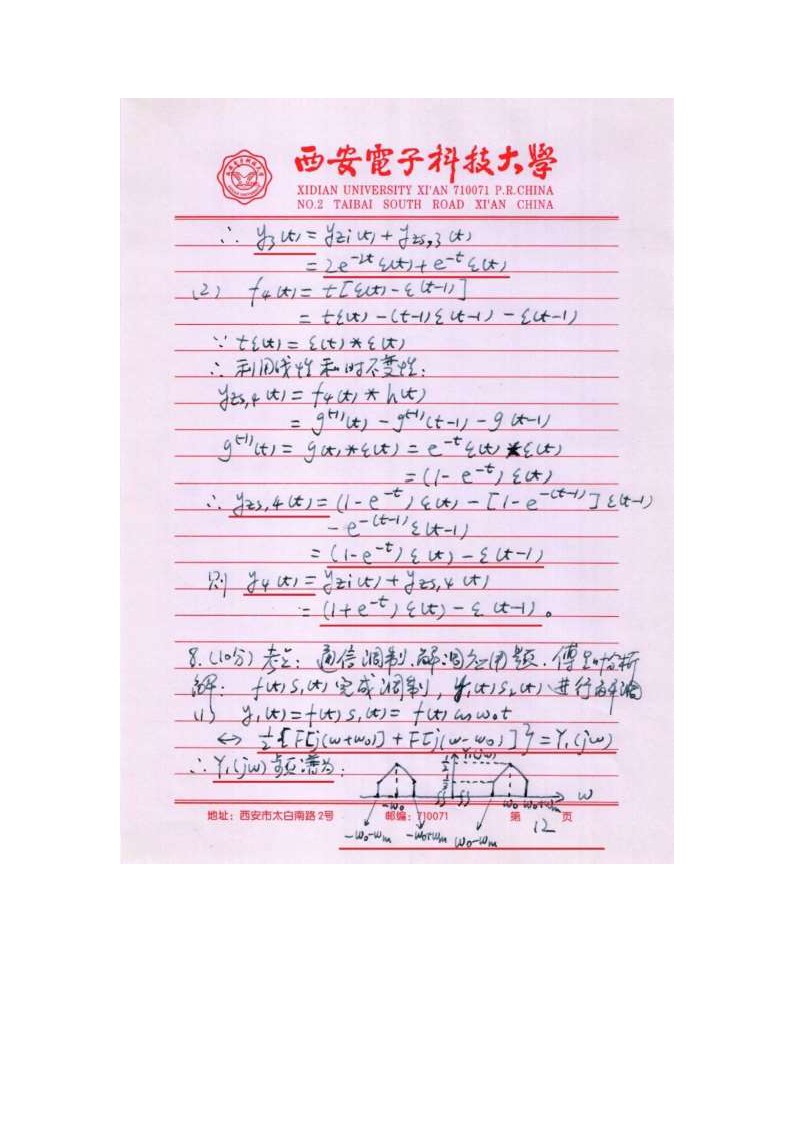 西安電子科技大學
XIDIAN UNIVERSITY XI'AN 710071 P.R.CHINA
NO.2 TAIBAI SOUTH ROAD XI'AN CHINA
∴ y₃(t) = yzi(t) + yzs,3(t)
= 2e^{-2t}ε(t) + e^{-t}ε(t)
(2) f₄(t) = t[ε(t) - ε(t-1)]
= tε(t) - (t-1)ε(t-1) - ε(t-1)
∵ tε(t) = ε(t) * ε(t)
∴ 利用线性和时不变性:
yzs,4(t) = f₄(t) * h(t)
= g^{(-1)}(t) - g^{(-1)}(t-1) - g(t-1)
g^{(-1)}(t) = g(t) * ε(t) = e^{-t}ε(t) * ε(t)
= (1 - e^{-t})ε(t)
∴ yzs,4(t) = (1 - e^{-t})ε(t) - [1 - e^{-(t-1)}]ε(t-1)
- e^{-(t-1)}ε(t-1)
= (1 - e^{-t})ε(t) - ε(t-1)
则 y₄(t) = yzi(t) + yzs,4(t)
= (1 + e^{-t})ε(t) - ε(t-1)。
8.(10分) 考点: 通信调制、解调应用题.傅里叶分析
解: f(t)s₁(t)完成调制, y₁(t)s₂(t)进行解调
(1) y₁(t) = f(t)s₁(t) = f(t)cosω₀t
↔ ½{F[j(ω+ω₀)] + F[j(ω-ω₀)]} = Y₁(jω)
∴ Y₁(jω)频谱为:
Y₁(jω)
½
-ω₀ ω₀ ω₀+ωm ω
-ω₀-ωm -ω₀+ωm ω₀-ωm
地址: 西安市太白南路2号 邮编: 710071 第 12 页